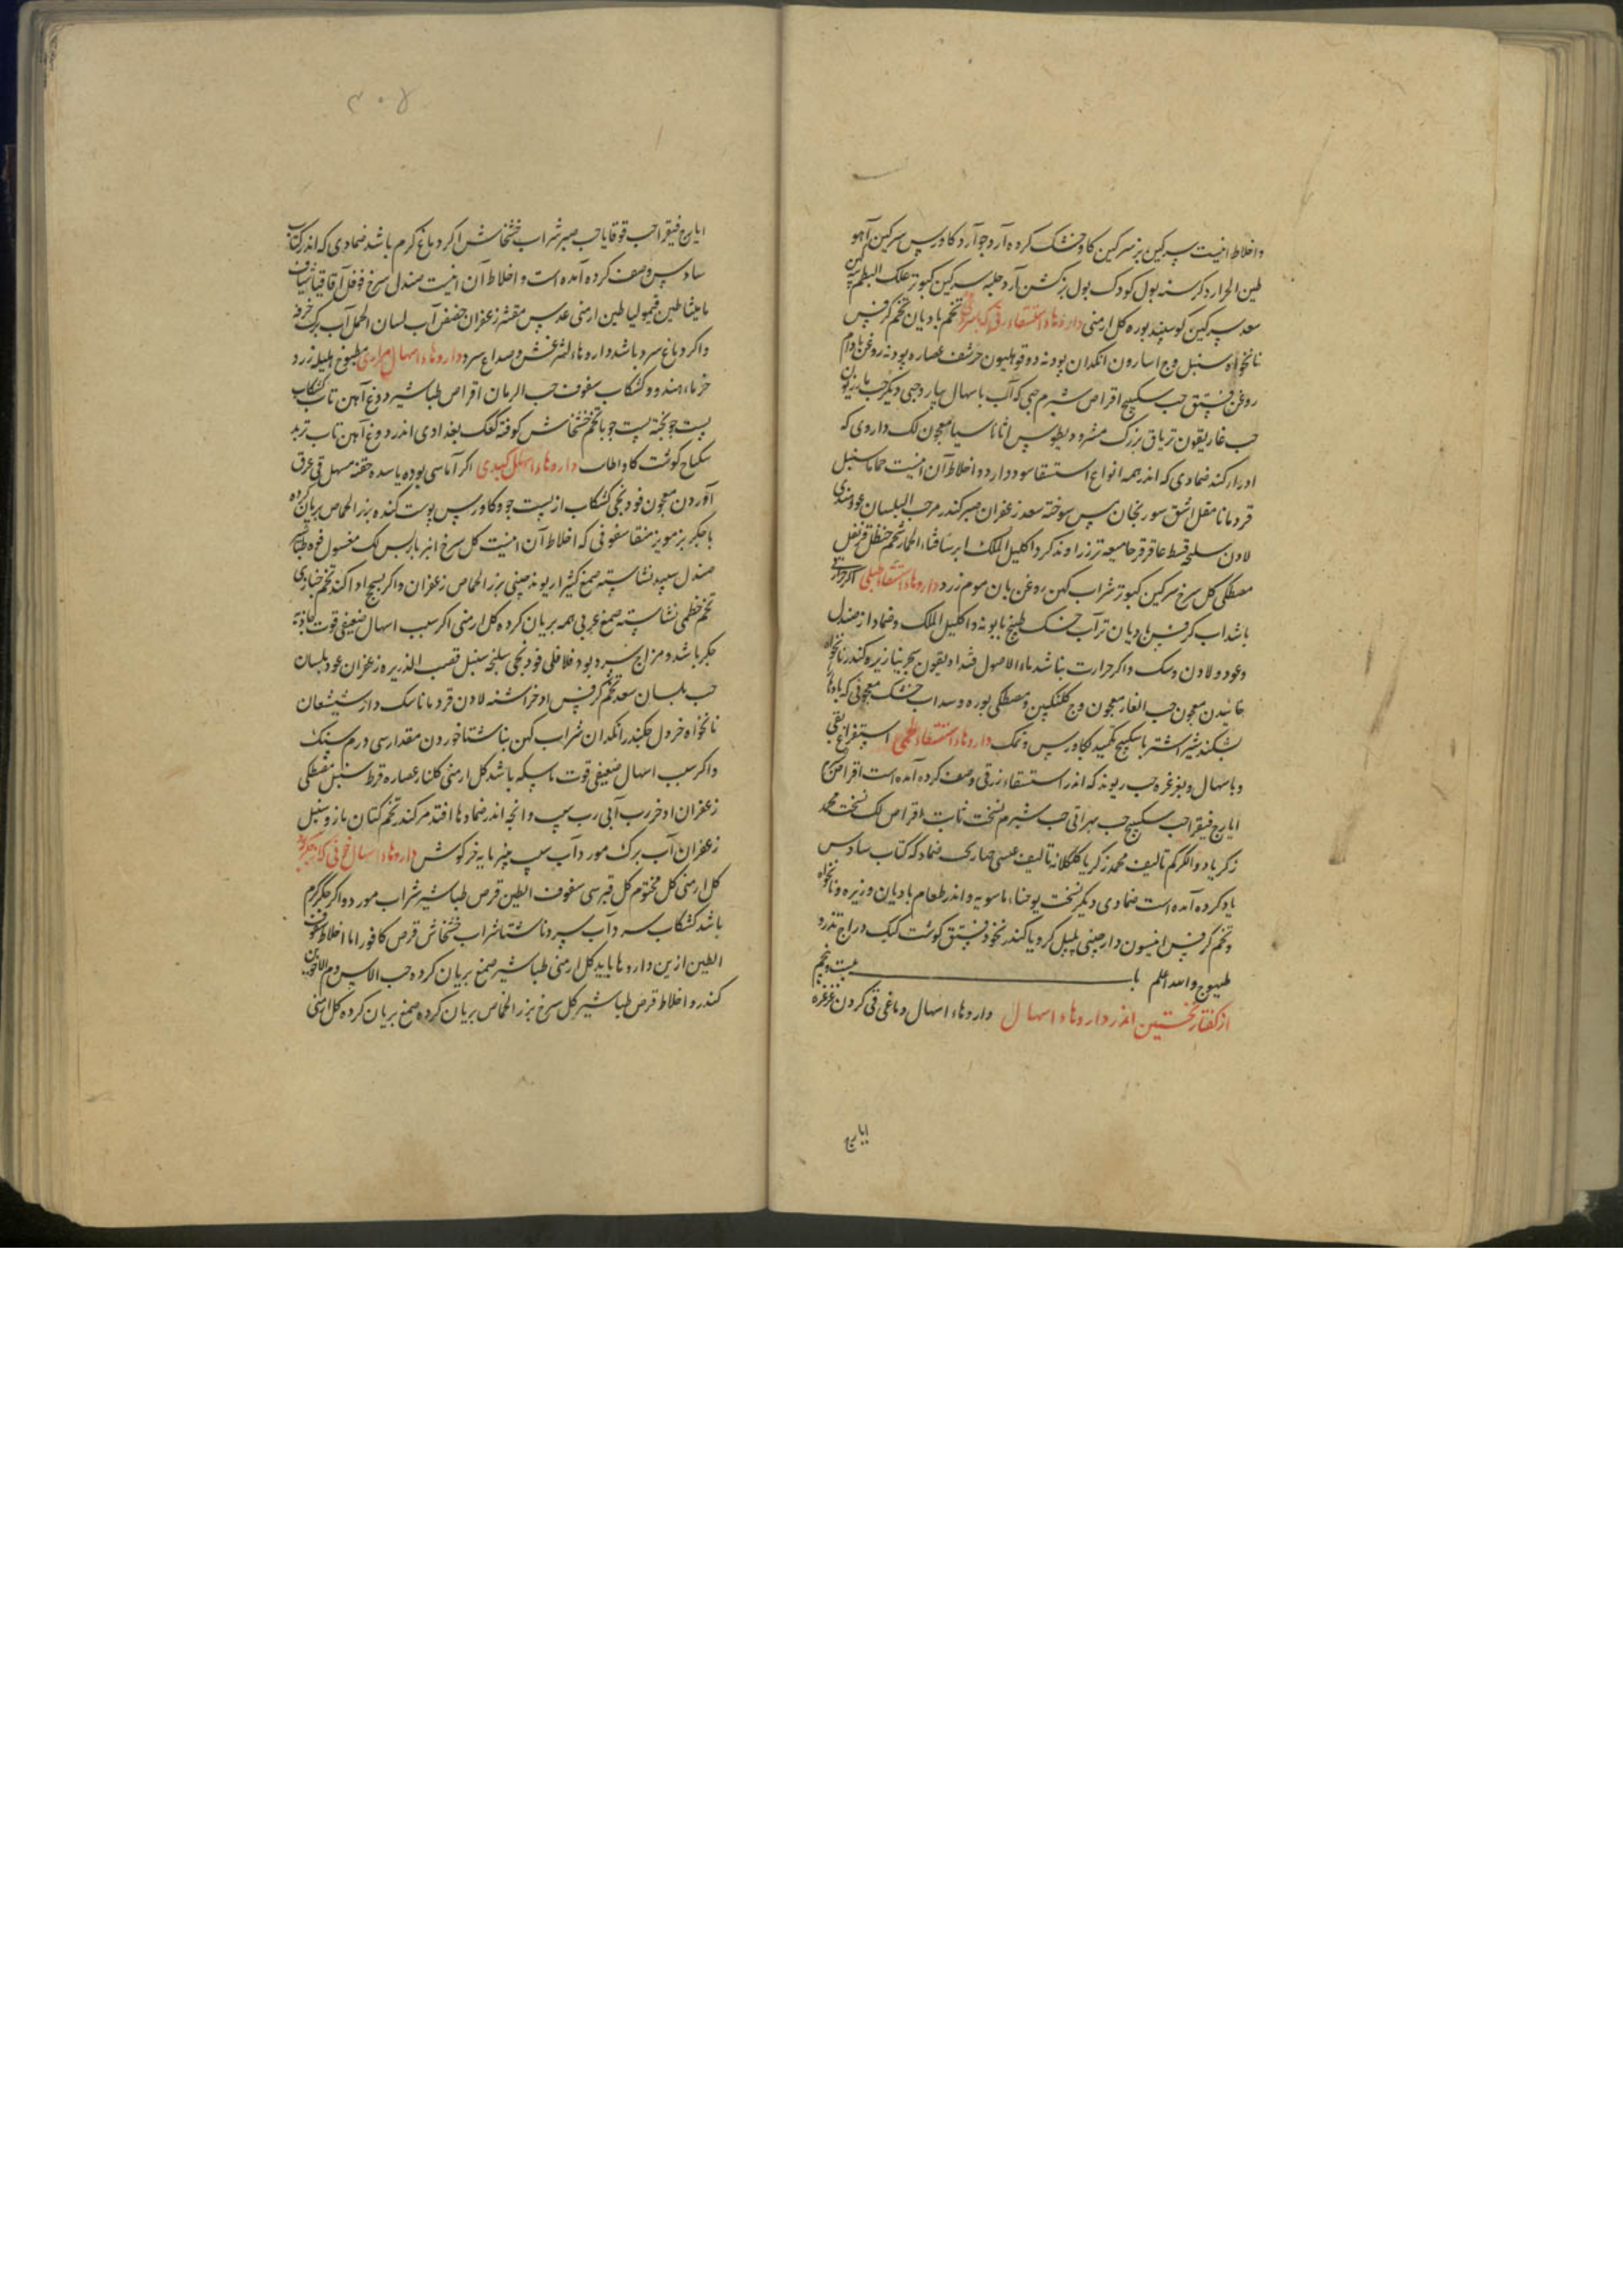 و اخلاط اینست سرکین بز سرکین کاو خشک کرده آرد جو آرد کاورس سرکین آهو
طین الحرارد کرسنه بول کودک بول بز کشن آرد حلبه سرکین کبوتر علک البطم
سعد سرکین کوسپند بوره کل ارمنی داروهاء استسقاء زقی که با سردی تخم بادیان تخم کرفس
نانخواه سنبل وج اسارون انکدان پودنه دوقو هلیون حرشف عصاره پودنه روغن بادام
روغن فستق حب سکبینج اقراص شبرم حبی که آب باسهال بیارد حبی دیکر حب مازریون
حب غاریقون تریاق بزرک مثرودیطوس اثاناسیا معجون لک داروی که
ادرار کند ضمادی که اندر همه انواع استسقا سود دارد و اخلاط آن اینست حماما سنبل
قردمانا مقل اشق سورنجان سوخته سعد زعفران صبر کندر مر حب البلسان عود هندی
لادن سلیخه قسط عاقرقرحا میعه تر زراوند کرد اکلیل الملک ایرسا قثاء الحمار شحم حنظل قرنفل
مصطکی کل سرخ سرکین کبوتر شراب کهن روغن بان موم زرد داروهاء استسقاء طبلی اکر حرارتی
باشد آب کرفس بادیان تر آب خسک طبیخ بابونه و اکلیل الملک و ضماد از صندل
و عود و لادن و سک و اکر حرارت نباشد ماء الاصول قنداديقون سجرینا زیره کندر نانخواه
خائیدن معجون حب الغار معجون وج کلنکبین و مصطکی بوره و سداب خشک معجونی که بادها
بشکند شیر اشتر با سکبینج تکمید بکاورس و نمک داروهاء استسقاء لحمی استفراغ بقی
و باسهال و بغرغره حب ریوند که اندر استسقاء زقی وصف کرده آمده است اقراص
ایارج فیقرا حب سکبینج حب بهراتی حب شبرم نسخت ثابت اقراص لک نسخت محمد
زکریا دواء الکرکم تالیف محمد زکریا کلکلانه تالیف عیسی صهاربخت ضماد که کتاب سادس
یاد کرده آمده است ضمادی دیکر نسخت یوحنا ماسویه و اندر طعام بادیان و زیره و نانخواه
و تخم کرفس انیسون دارچینی پلپل کرویا کندر نخود فستق کوشت کبک دراج تذرو
طیهوج و الله اعلم باب بیست و پنجم
از کفتار نخستین اندر داروهاء اسهال داروهاء اسهال دماغی قی کردن غرغره
ایارج
۳۰۵
ایارج فیقرا حب قوقایا حب صبر شراب خشخاش اکر دماغ کرم باشد ضمادی که اندر کتاب
سادس وصف کرده آمده است و اخلاط آن اینست صندل سرخ فوفل آقاقیا شیاف
مامیثا طین قیمولیا طین ارمنی عدس مقشر زعفران حضض آب لسان الحمل آب برک خرفه
و اکر دماغ سرد باشد داروهاء لیثرغس و صداع سرد داروهاء اسهال مراری مطبوخ هلیله زرد
خرماء هندو و کشکاب سفوف حب الرمان اقراص طباشیر دوغ آهن تاب کشکاب
پست جو پخته پست جو با تخم خشخاش کوفته کعک بغدادی اندر دوغ آهن تاب ترید
سکباج کوشت کاو داروهاء اسهال کبدی اکر آماسی بوده یا سده حقنه مسهل قی عرق
آوردن معجون فودنجی کشکاب از پست جو و کاورس پوست کنده بزر الحماض بریان کرده
با جکر بز مویز منقا سفوفی که اخلاط آن اینست کل سرخ انبرباریس لک مغسول فوه طباشیر
صندل سپید نشاسته صمغ کثیرا ریوند چینی بزر الحماض زعفران و اکر سحج اوا کند تخم خبازی
تخم خطمی نشاسته صمغ عربی همه بریان کرده کل ارمنی اکر سبب اسهال ضعیفی قوت جاذبه
جکر باشد و مزاج سرد بود فلافلی فودنجی سلیخه سنبل قصب الذریره زعفران عود بلسان
حب بلسان سعد تخم کرفس اذخر اشنه لادن قردمانا سک دارشیشعان
نانخواه خردل کندر انکدان شراب کهن بناشتا خوردن مقدار سی درم سنک
و اکر سبب اسهال ضعیفی قوت ماسکه باشد کل ارمنی کلنار عصاره قرظ سنبل مصطکی
زعفران اذخر رب آبی رب سیب و انجه اندر ضمادها افتد مر کندر تخم کتان مازو سنبل
زعفران آب برک مورد آب سیب پنیر مایه خرکوش داروهاء اسهال خونی که از جکر بود
کل ارمنی کل مختوم کل قبرسی سفوف الطین قرص طباشیر شراب مورد و اکر جکر کرم
باشد کشکاب سرد آب سرد ناشتا شراب خشخاش قرص کافور اما اخلاط سفوف
الطین ازین داروها باید کل ارمنی طباشیر صمغ بریان کرده حب الاس دم الاخوین
کندر و اخلاط قرص طباشیر کل سرخ بزر الحماض بریان کرده صمغ بریان کرده کل ارمنی